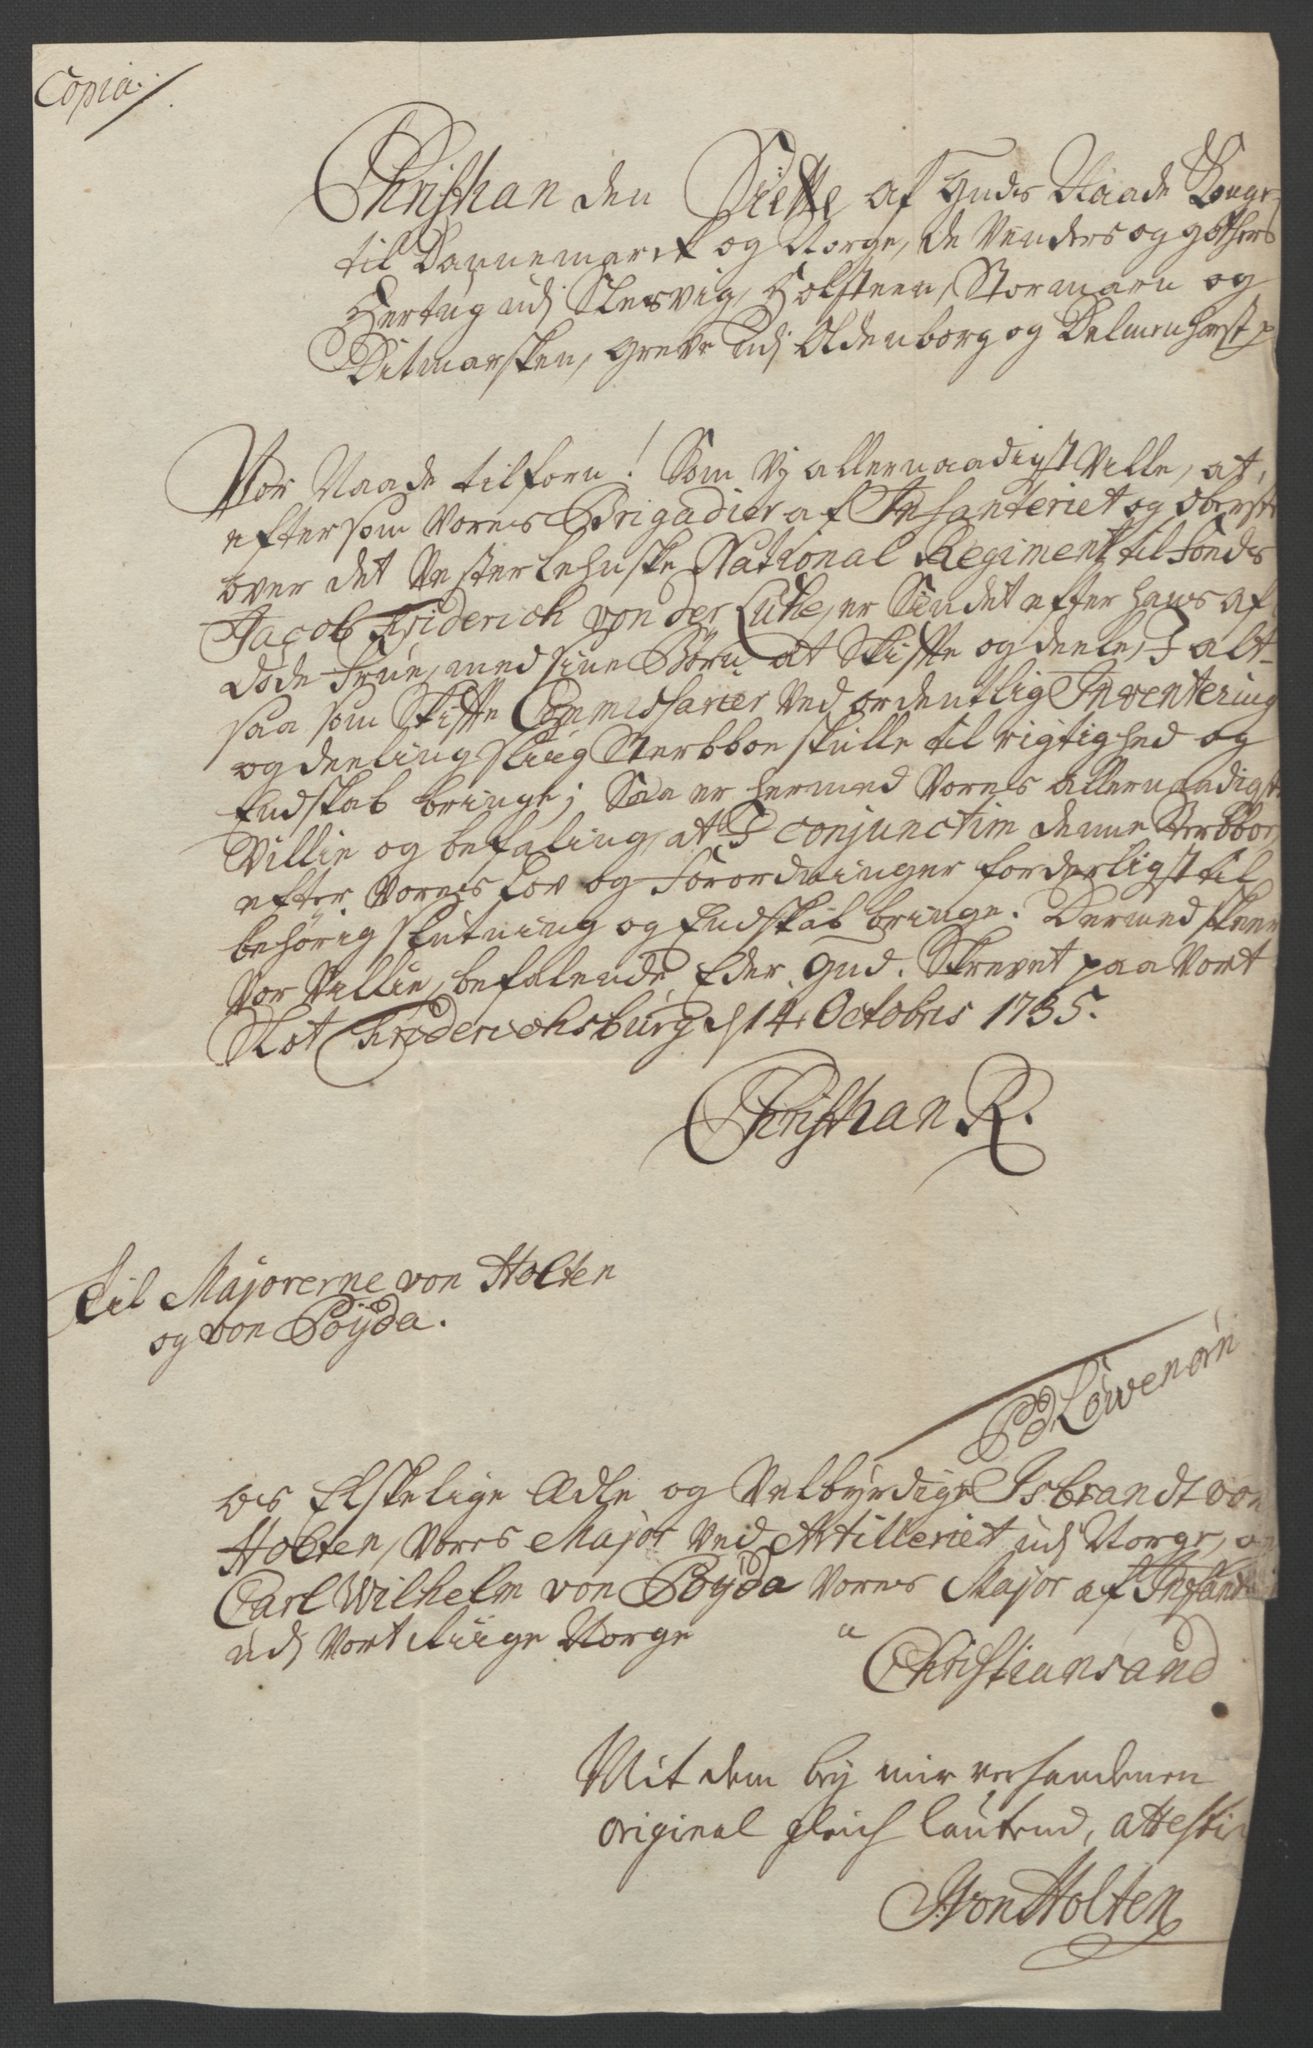 Copia.
Christian den Siette af Guds Naade Konge
til Dannemarck og Norge, de Venders og Gothers
Hertug udj Slesvig, Holsteen, Stormarn og
Ditmarsken, Greve udj Oldenborg og Delmenhorst p
Vor Naade tilforn! Som Vj allernaadigst Ville, at,
eftersom Vores Brigadier af Infanteriet og Oberste
over det Vesterlehnske National Regiment til Foeds
Jacob Friderich von der Luhe, er Sindet efter hans af
døde Frue, med sine Børn at Skifte og deele, I alt-
saa som Skifte Commissarier Ved ordentlig Inventering
og deeling sliig Sterbboe skulle til rigtighed og
Endskab bringe; Saa er hermed Vores allernaadigste
Villie og befaling, at I conjunctim denne Sterbboe,
efter Vores Lov og Forordninger forderligst til
behørig slutning og Endskab bringe. Dermed skeer
Vor Villie, befalende Eder Gud. Skrevet paa Vort
Slot Friderichsburg d 14 Octobris 1735.
Christian R.
Til Majorerne von Holten
og von Pøÿda.
PdLöwenörn
Os Elskelige Ædle og Velbyrdige Isbrandt von
Holten, Vores Major Ved Artilleriet udj Norge, og
Carl Wilhelm von Pøÿda Vores Major af Infant
udj Vort Riige Norge
a
Christiansand
Mit dem beÿ mir verhandenen
Original gleich lautend, attestir
JvonHolten